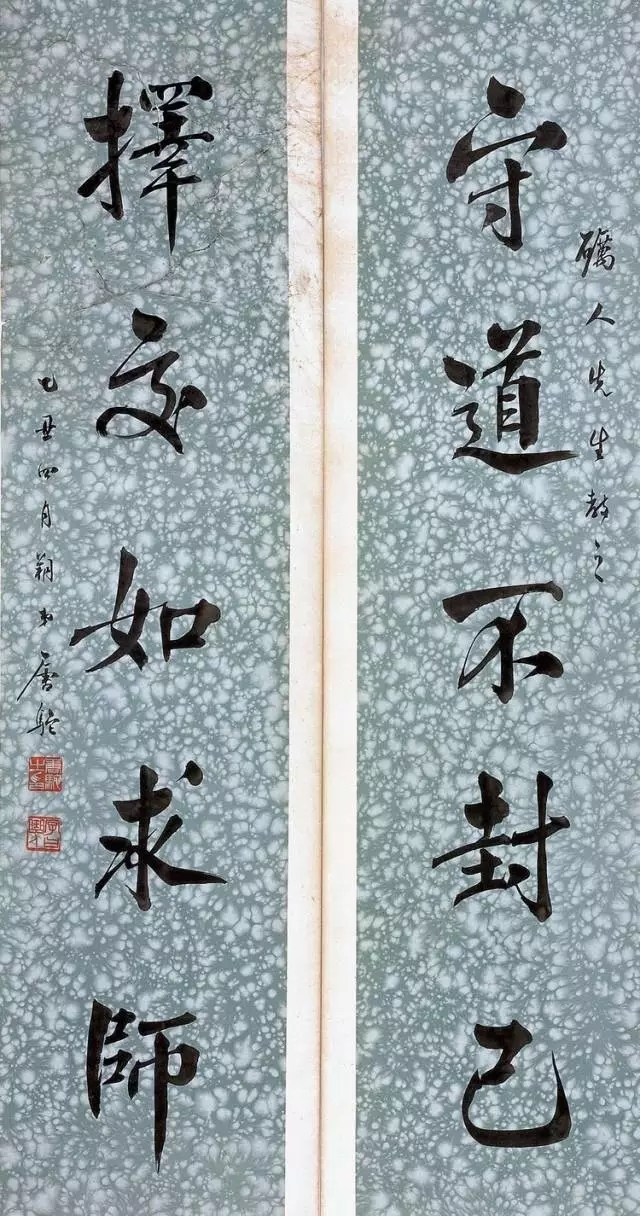 礪人先生教之
守道不封己
擇交如求師
乙丑四月朔弟唐駝